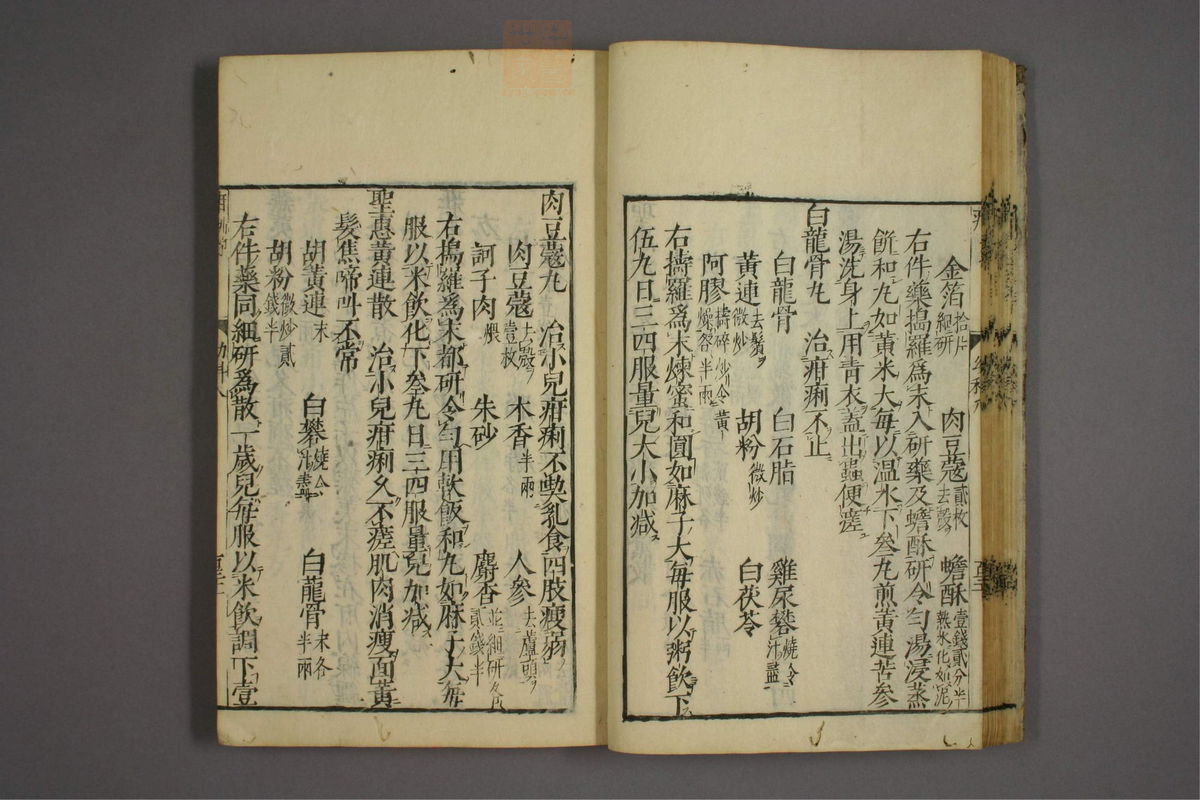 金箔拾片細研　肉豆蔻貳枚去殼　蟾酥壹錢貳分半熱水化如泥
右件藥搗羅爲末入研藥及蟾酥研令勻湯浸蒸
餅和丸如黃米大每以温水下叄丸煎黃連苦參
湯洗身上用青衣蓋出蟲便瘥
白龍骨丸　治疳痢不止
白龍骨　白石脂　雞屎礬燒令汁盡
黃連去鬚微炒　胡粉微炒　白茯苓
阿膠擣碎炒令黃燥各半兩
右擣羅爲末煉蜜和圓如麻子大每服以粥飲下
伍丸日三四服量兒大小加减
肉豆蔻丸　治小兒疳痢不喫乳食四肢瘦弱
肉豆蔻去殼壹枚　木香半兩　人參去蘆頭
訶子肉煨　朱砂　麝香並細研各貳錢半
右搗羅爲末都研令勻用軟飯和丸如麻子大每
服以米飲化下叄丸日三四服量兒加减
聖惠黃連散　治小兒疳痢久不瘥肌肉消瘦面黃
髮焦啼叫不常
胡黃連末　白礬燒令汁盡　白龍骨末各半兩
胡粉微炒貳錢半
右件藥同細研爲散一歲兒每服以米飲調下壹